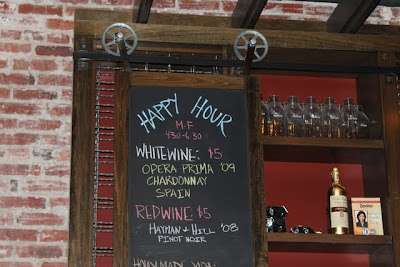 HAPPY HOUR
M-F
4:30-6:30
WHITE WINE: $5
OPERA PRIMA '09
CHARDONNAY
SPAIN
RED WINE: $5
HAYMAN & HILL '08
PINOT NOIR
Zovino